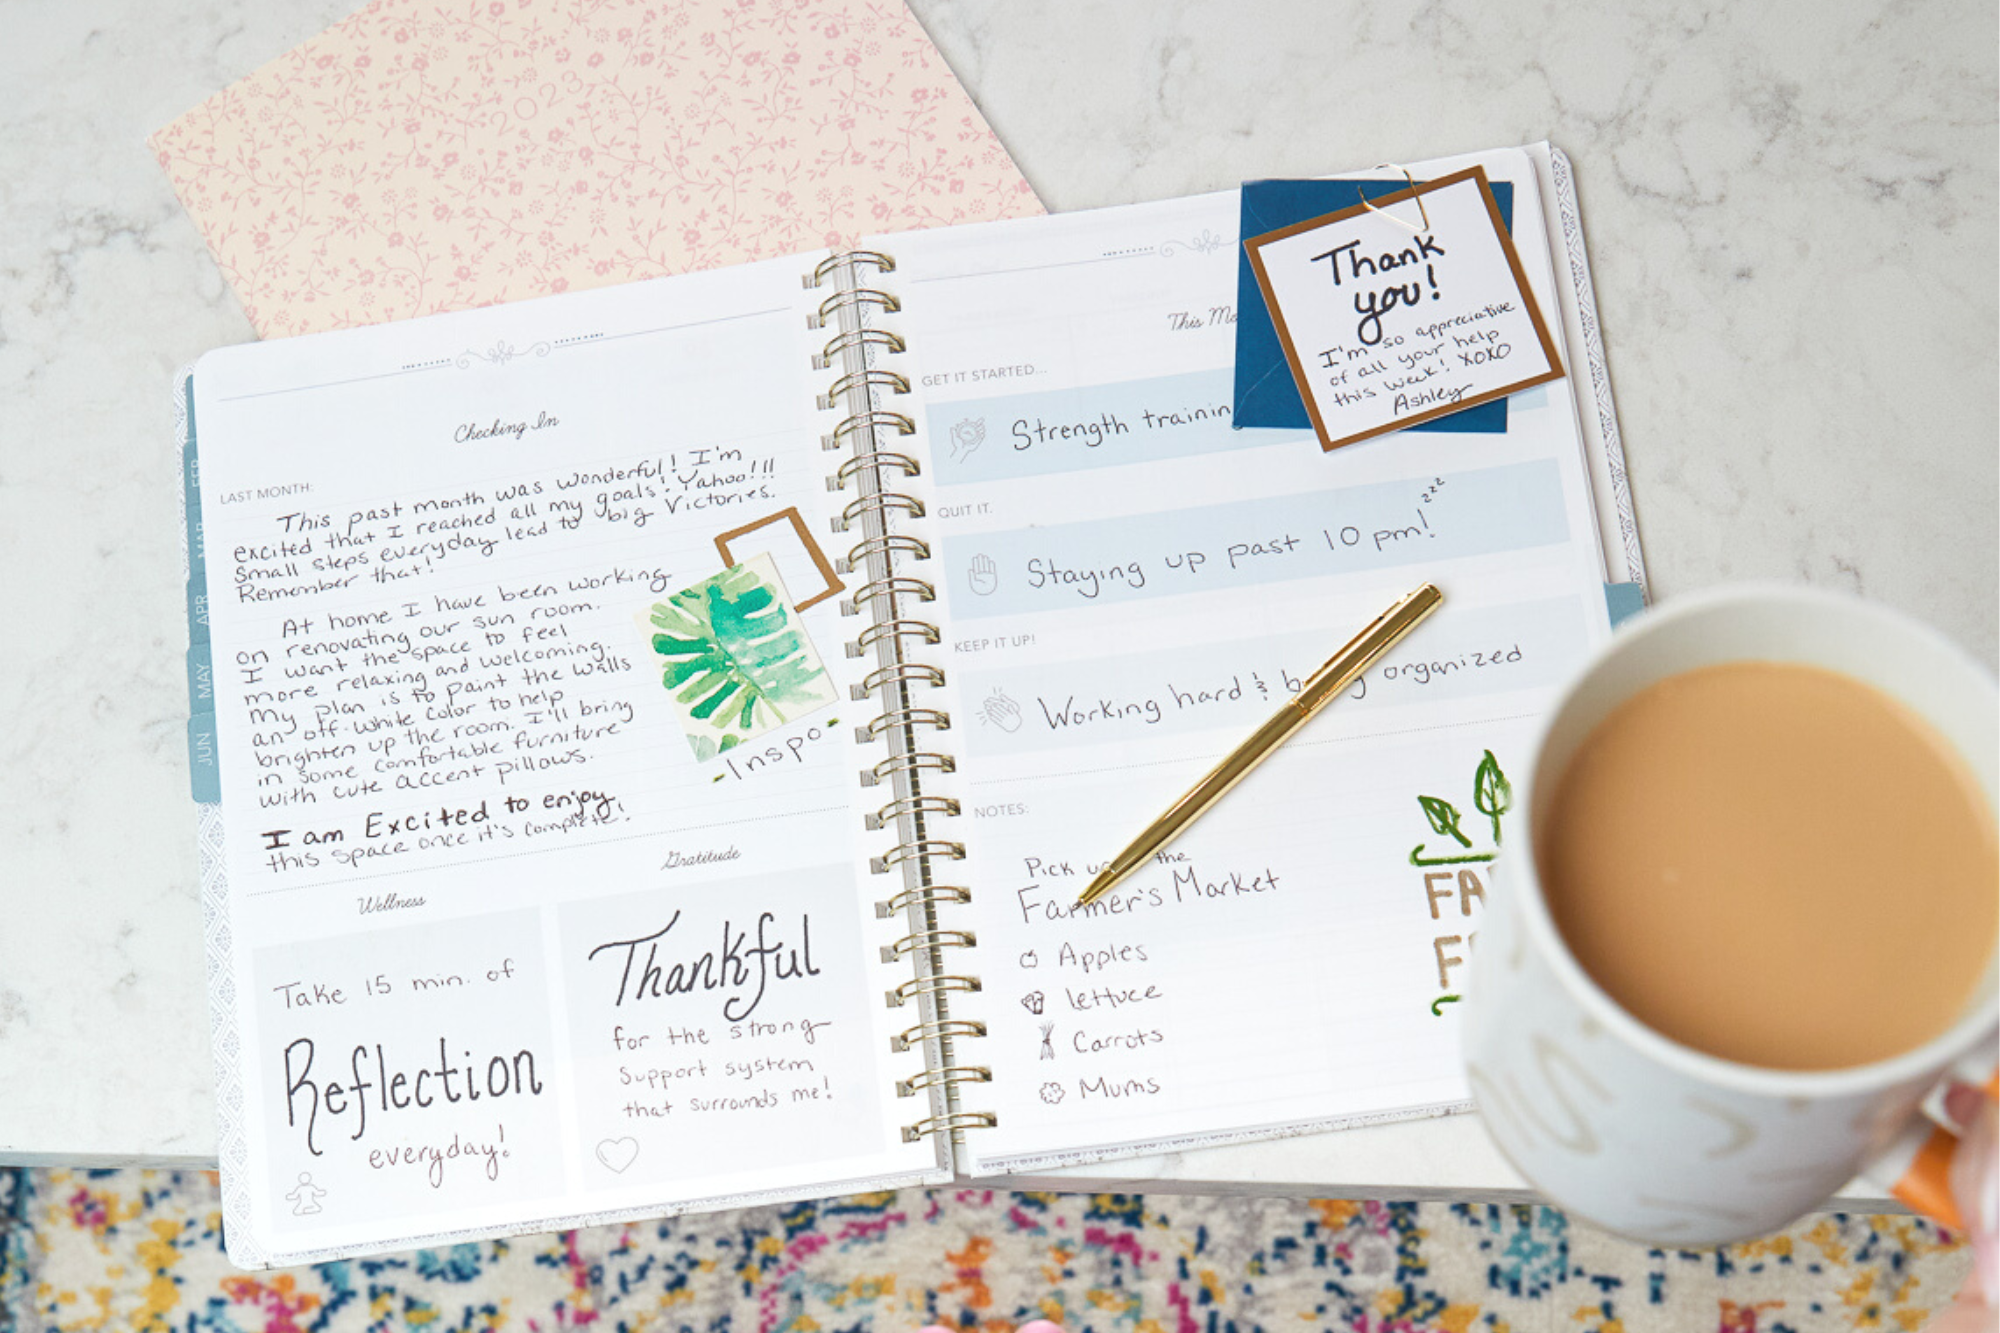 2023
FEB
MAR
APR
MAY
JUN
Checking In
LAST MONTH:
This past month was wonderful! I'm
excited that I reached all my goals! Yahoo!!!
Small steps everyday lead to big Victories.
Remember that!
At home I have been working
on renovating our sun room.
I want the space to feel
more relaxing and welcoming.
My plan is to paint the walls
an off-white color to help
brighten up the room. I'll bring
in some comfortable furniture
with cute accent pillows.
I am Excited to enjoy
this space once it's complete!
-Inspo-
Wellness
Take 15 min. of
Reflection
everyday!
Gratitude
Thankful
for the strong
support system
that surrounds me!
This
GET IT STARTED...
Strength
QUIT IT.
Staying up past 10 pm! zzz
KEEP IT UP!
Working hard & organized
NOTES:
Pick the
Farmer's Market
Apples
lettuce
Carrots
Mums
Thank
you!
I'm so appreciative
of all your help
this week! XOXO
Ashley